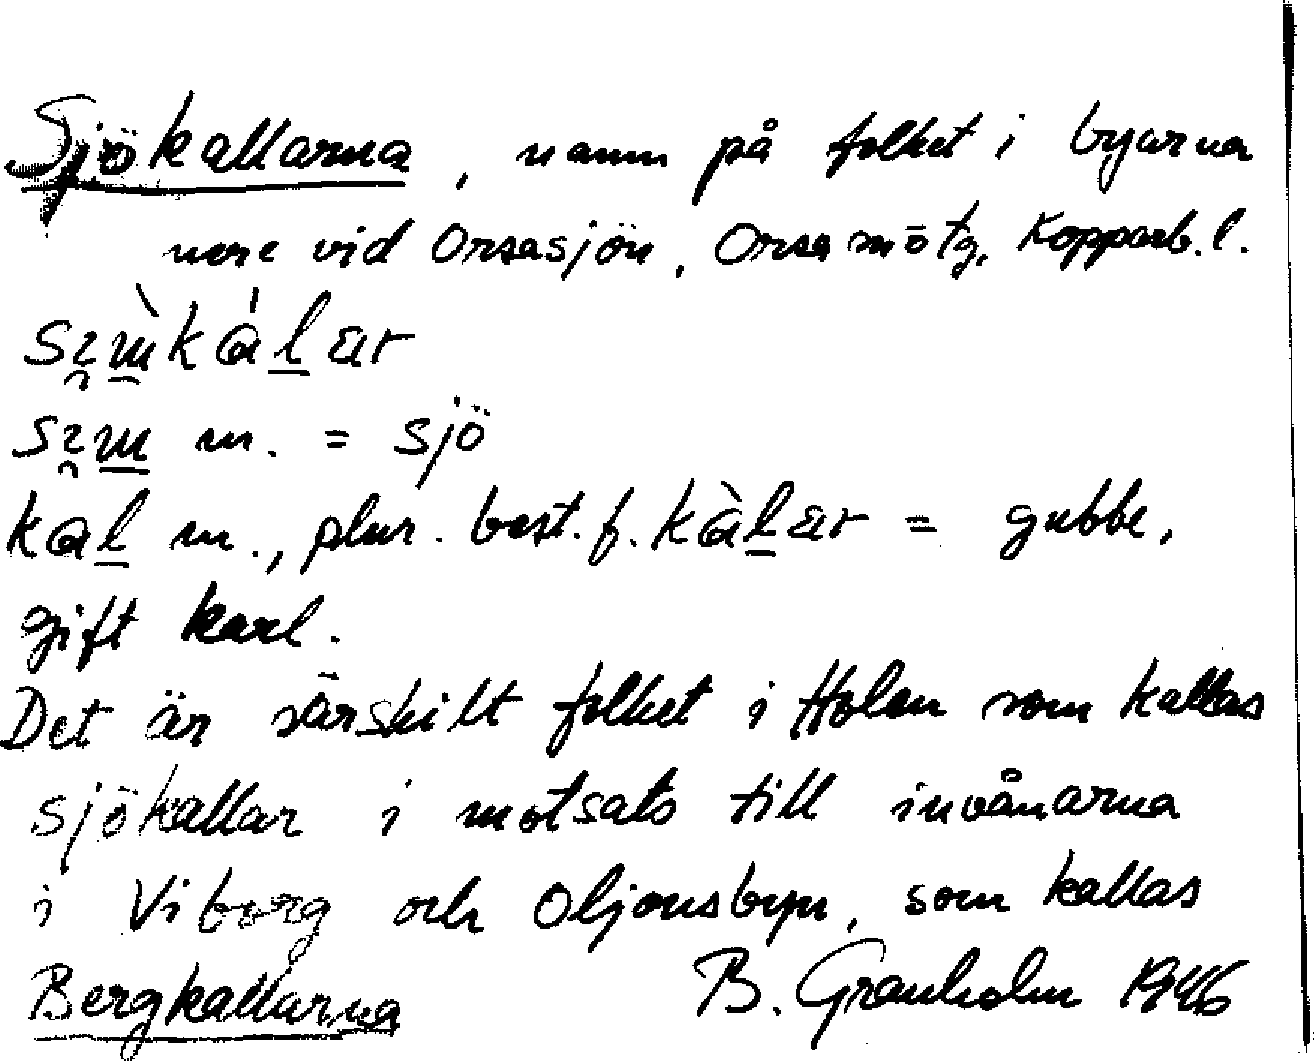 Sjökallarna, namn på folket i byarna
nere vid Orsasjön, Orsa mötg, Kopparb. l.
m. = sjö
kal m., plur. best. f. kàlar = gubbe,
gift karl.
Det är särskilt folket i Holen som kallas
sjökallar i motsats till invånarna
i Viborg och Oljonsbyn, som kallas
Bergkallarna B. Granholm 1946